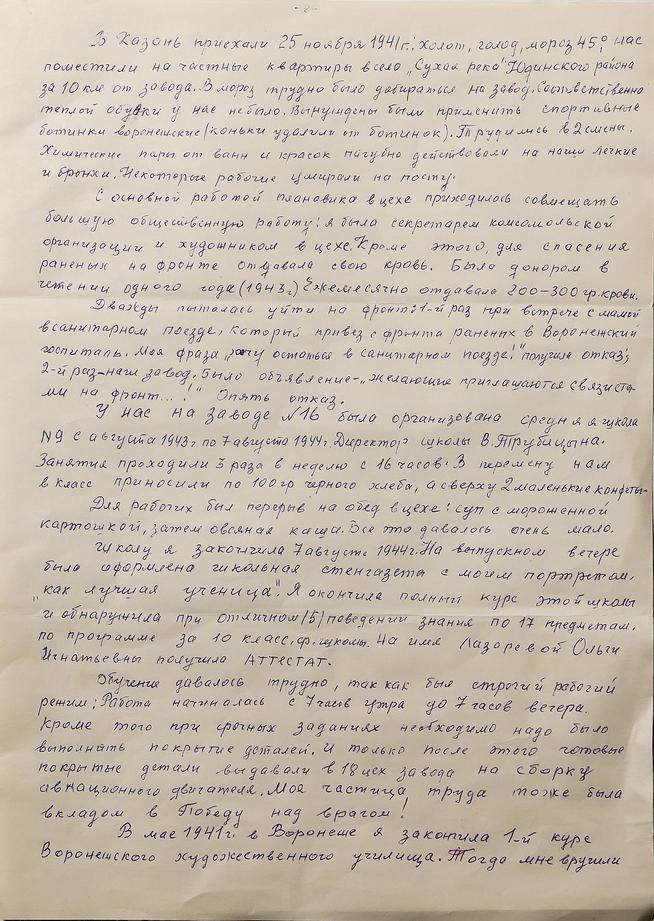 -2-
В Казань приехали 25 ноября 1941г.: холот, голод, мороз 45°, нас
поместили на частные квартиры в село „Сухая река" Юдинского района
за 10 км от завода. В мороз трудно было добираться на завод. Соответственно
тёплой обувки у нас не было. Вынуждены были применить спортивные
ботинки воронежские (коньки удалили от ботинок). Трудились в 2 смены.
Химические пары от ванн и красок пагубно действовали на наши лёгкие
и бронхи. Некоторые рабочие умирали на посту.
С основной работой плановика в цехе приходилось совмещать
большую общественную работу: я была секретарём комсомольской
организации и художником в цехе. Кроме этого, для спасения
раненых на фронте отдавала свою кровь. Была донором в
течении одного года (1943г.) Ежемесячно отдавала 200-300 гр. крови.
Дважды пыталась уйти на фронт: 1-й раз при встрече с мамой
в санитарном поезде, который привёз с фронта раненых в Воронежский
госпиталь. Моя фраза „хочу остаться в санитарном поезде!" получила отказ;
2-й раз-наш завод. Было объявление-„желающие приглашаются связиста-
ми на фронт...!" Опять отказ.
У нас на заводе №16 была организована средняя школа
№9 с августа 1943г. по 7 августа 1944г. Директор школы В. Трубицына.
Занятия проходили 3 раза в неделю с 16 часов. В перемену нам
в класс приносили по 100гр чёрного хлеба, а сверху 2 маленькие конфеты.
Для рабочих был перерыв на обед в цехе: суп с мороженной
картошкой, затем овсяная каша. Всё это давалось очень мало.
Школу я закончила 7 августа 1944г. На выпускном вечере
была оформлена школьная стенгазета с моим портретом,
„как лучшая ученица". Я окончила полный курс этой школы
и обнаружила при отличном /5/ поведении знания по 17 предметам,
по программе за 10 класс. ф. школы. На имя Лазоревой Ольги
Игнатьевны получила АТТЕСТАТ.
Обучение давалось трудно, так как был строгий рабочий
режим: Работа начиналась с 7 часов утра до 7 часов вечера.
Кроме того при срочных заданиях необходимо надо было
выполнять покрытие деталей. И только после этого готовые
покрытые детали выдавали в 18 цех завода на сборку
авиационного двигателя. Моя частица труда тоже была
вкладом в Победу над врагом!
В мае 1941г. в Воронеше я закончила 1-й курс
Воронешского художественного училища. Тогда мне вручили